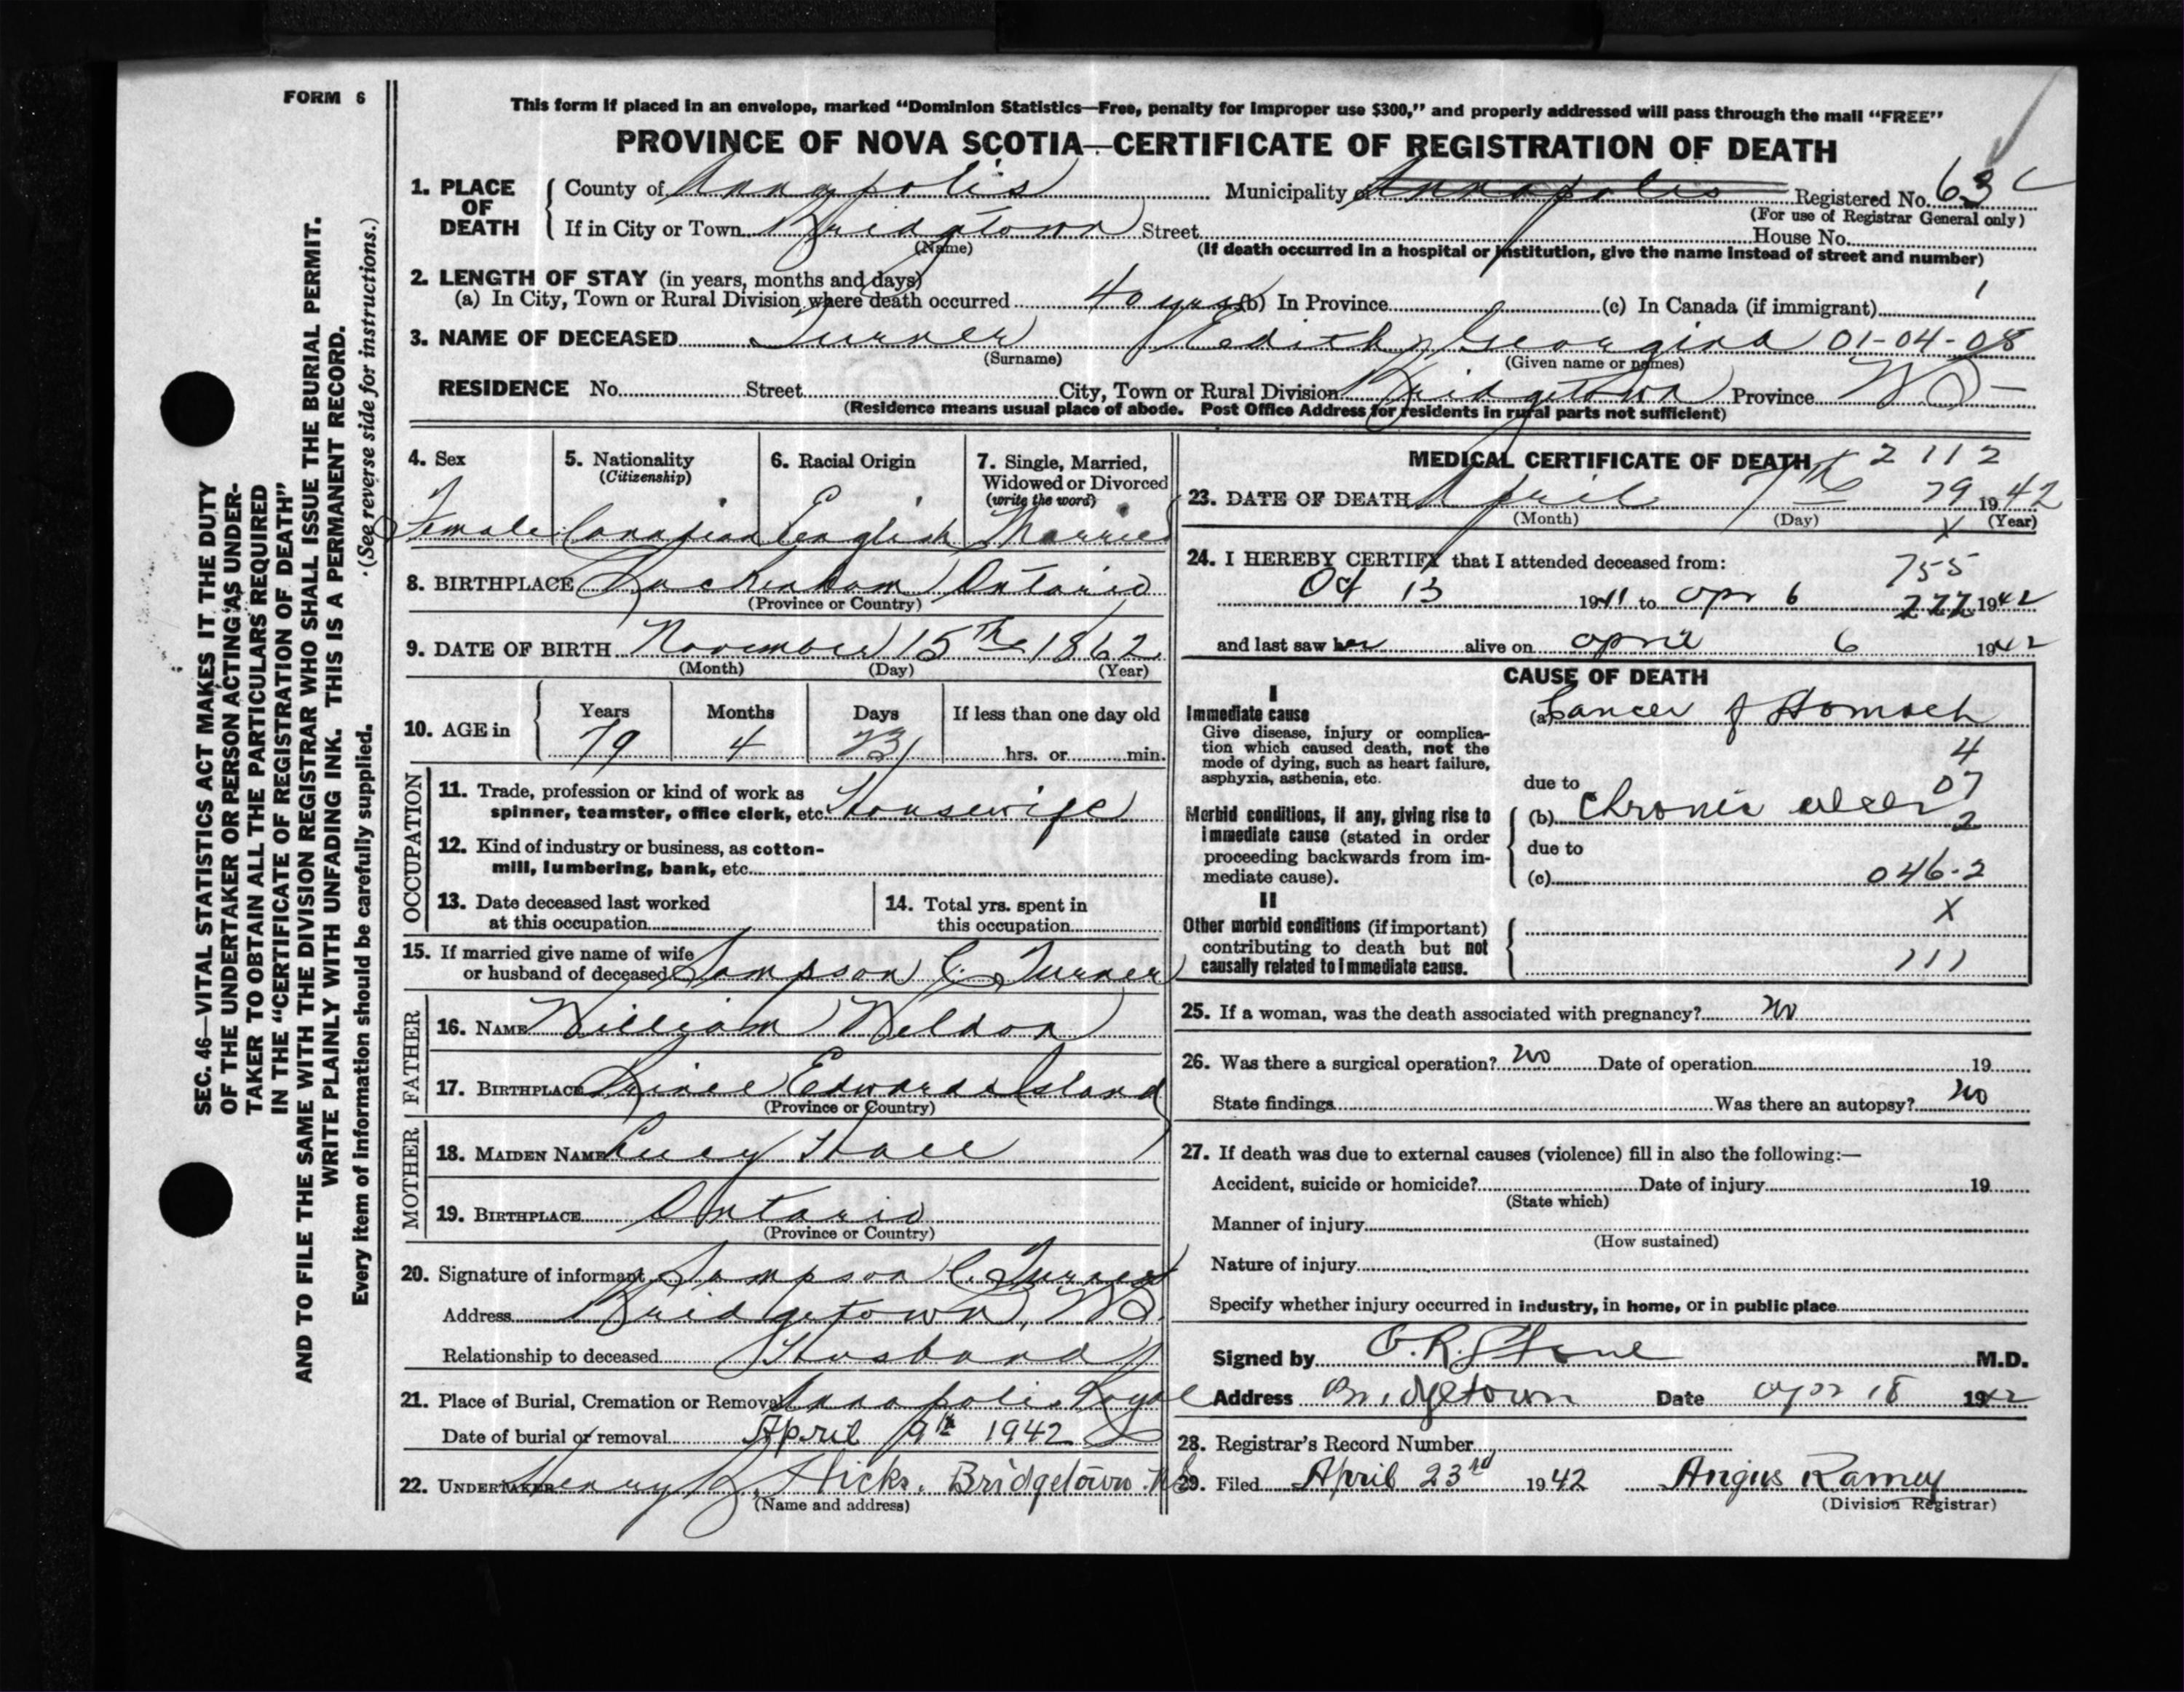 FORM 6
This form if placed in an envelope, marked “Dominion Statistics—Free, penalty for improper use $300,” and properly addressed will pass through the mail “FREE”
PROVINCE OF NOVA SCOTIA—CERTIFICATE OF REGISTRATION OF DEATH
1. PLACE OF DEATH
County of Annapolis Municipality of Annapolis Registered No. 63
(For use of Registrar General only)
If in City or Town Bridgetown Street House No.
(Name) (If death occurred in a hospital or institution, give the name instead of street and number)
2. LENGTH OF STAY (in years, months and days)
(a) In City, Town or Rural Division where death occurred 40 yrs (b) In Province (c) In Canada (if immigrant) 1
3. NAME OF DECEASED Turner Edith Georgina 01-04-08
(Surname) (Given name or names)
RESIDENCE No. Street City, Town or Rural Division Bridgetown Province NS
(Residence means usual place of abode. Post Office Address for residents in rural parts not sufficient)
4. Sex
Female
5. Nationality
(Citizenship)
Canadian
6. Racial Origin
English
7. Single, Married, Widowed or Divorced
(write the word)
Married
8. BIRTHPLACE Ontario
(Province or Country)
9. DATE OF BIRTH November 15th 1862
(Month) (Day) (Year)
10. AGE in
Years Months Days If less than one day old
79 4 23 hrs. or min.
OCCUPATION
11. Trade, profession or kind of work as
spinner, teamster, office clerk, etc. Housewife
12. Kind of industry or business, as cotton-
mill, lumbering, bank, etc.
13. Date deceased last worked
at this occupation
14. Total yrs. spent in
this occupation
15. If married give name of wife
or husband of deceased Sampson C. Turner
FATHER
16. NAME William Weldon
17. BIRTHPLACE Prince Edward Island
(Province or Country)
MOTHER
18. MAIDEN NAME Lucy Hall
19. BIRTHPLACE Ontario
(Province or Country)
20. Signature of informant Sampson C. Turner
Address Bridgetown, NS.
Relationship to deceased Husband
21. Place of Burial, Cremation or Removal Annapolis Royal
Date of burial or removal April 9th 1942
22. UNDERTAKER Henry Hicks, Bridgetown. NS
(Name and address)
MEDICAL CERTIFICATE OF DEATH 2112
23. DATE OF DEATH April 7th 79 1942
(Month) (Day) (Year)
X
24. I HEREBY CERTIFY that I attended deceased from:
755
Oct 13 1941 to Apr 6 222 1942
and last saw her alive on April 6 1942
CAUSE OF DEATH
I
Immediate cause
Give disease, injury or complica-
tion which caused death, not the
mode of dying, such as heart failure,
asphyxia, asthenia, etc.
(a) Cancer of Stomach
4
due to 07
Morbid conditions, if any, giving rise to
immediate cause (stated in order
proceeding backwards from im-
mediate cause).
(b) Chronic ulcer 2
due to
(c) 046-2
X
II
Other morbid conditions (if important)
contributing to death but not
causally related to immediate cause.
111
25. If a woman, was the death associated with pregnancy? no
26. Was there a surgical operation? no Date of operation 19
State findings Was there an autopsy? no
27. If death was due to external causes (violence) fill in also the following:—
Accident, suicide or homicide? Date of injury 19
(State which)
Manner of injury
(How sustained)
Nature of injury
Specify whether injury occurred in industry, in home, or in public place
Signed by Stone M.D.
Address Bridgetown Date Apr 18 1942
28. Registrar's Record Number
29. Filed April 23rd 1942 Angus Ramey
(Division Registrar)
SEC. 46—VITAL STATISTICS ACT MAKES IT THE DUTY
OF THE UNDERTAKER OR PERSON ACTING AS UNDER-
TAKER TO OBTAIN ALL THE PARTICULARS REQUIRED
IN THE “CERTIFICATE OF REGISTRATION OF DEATH”
AND TO FILE THE SAME WITH THE DIVISION REGISTRAR WHO SHALL ISSUE THE BURIAL PERMIT.
WRITE PLAINLY WITH UNFADING INK. THIS IS A PERMANENT RECORD.
Every item of information should be carefully supplied. (See reverse side for instructions.)